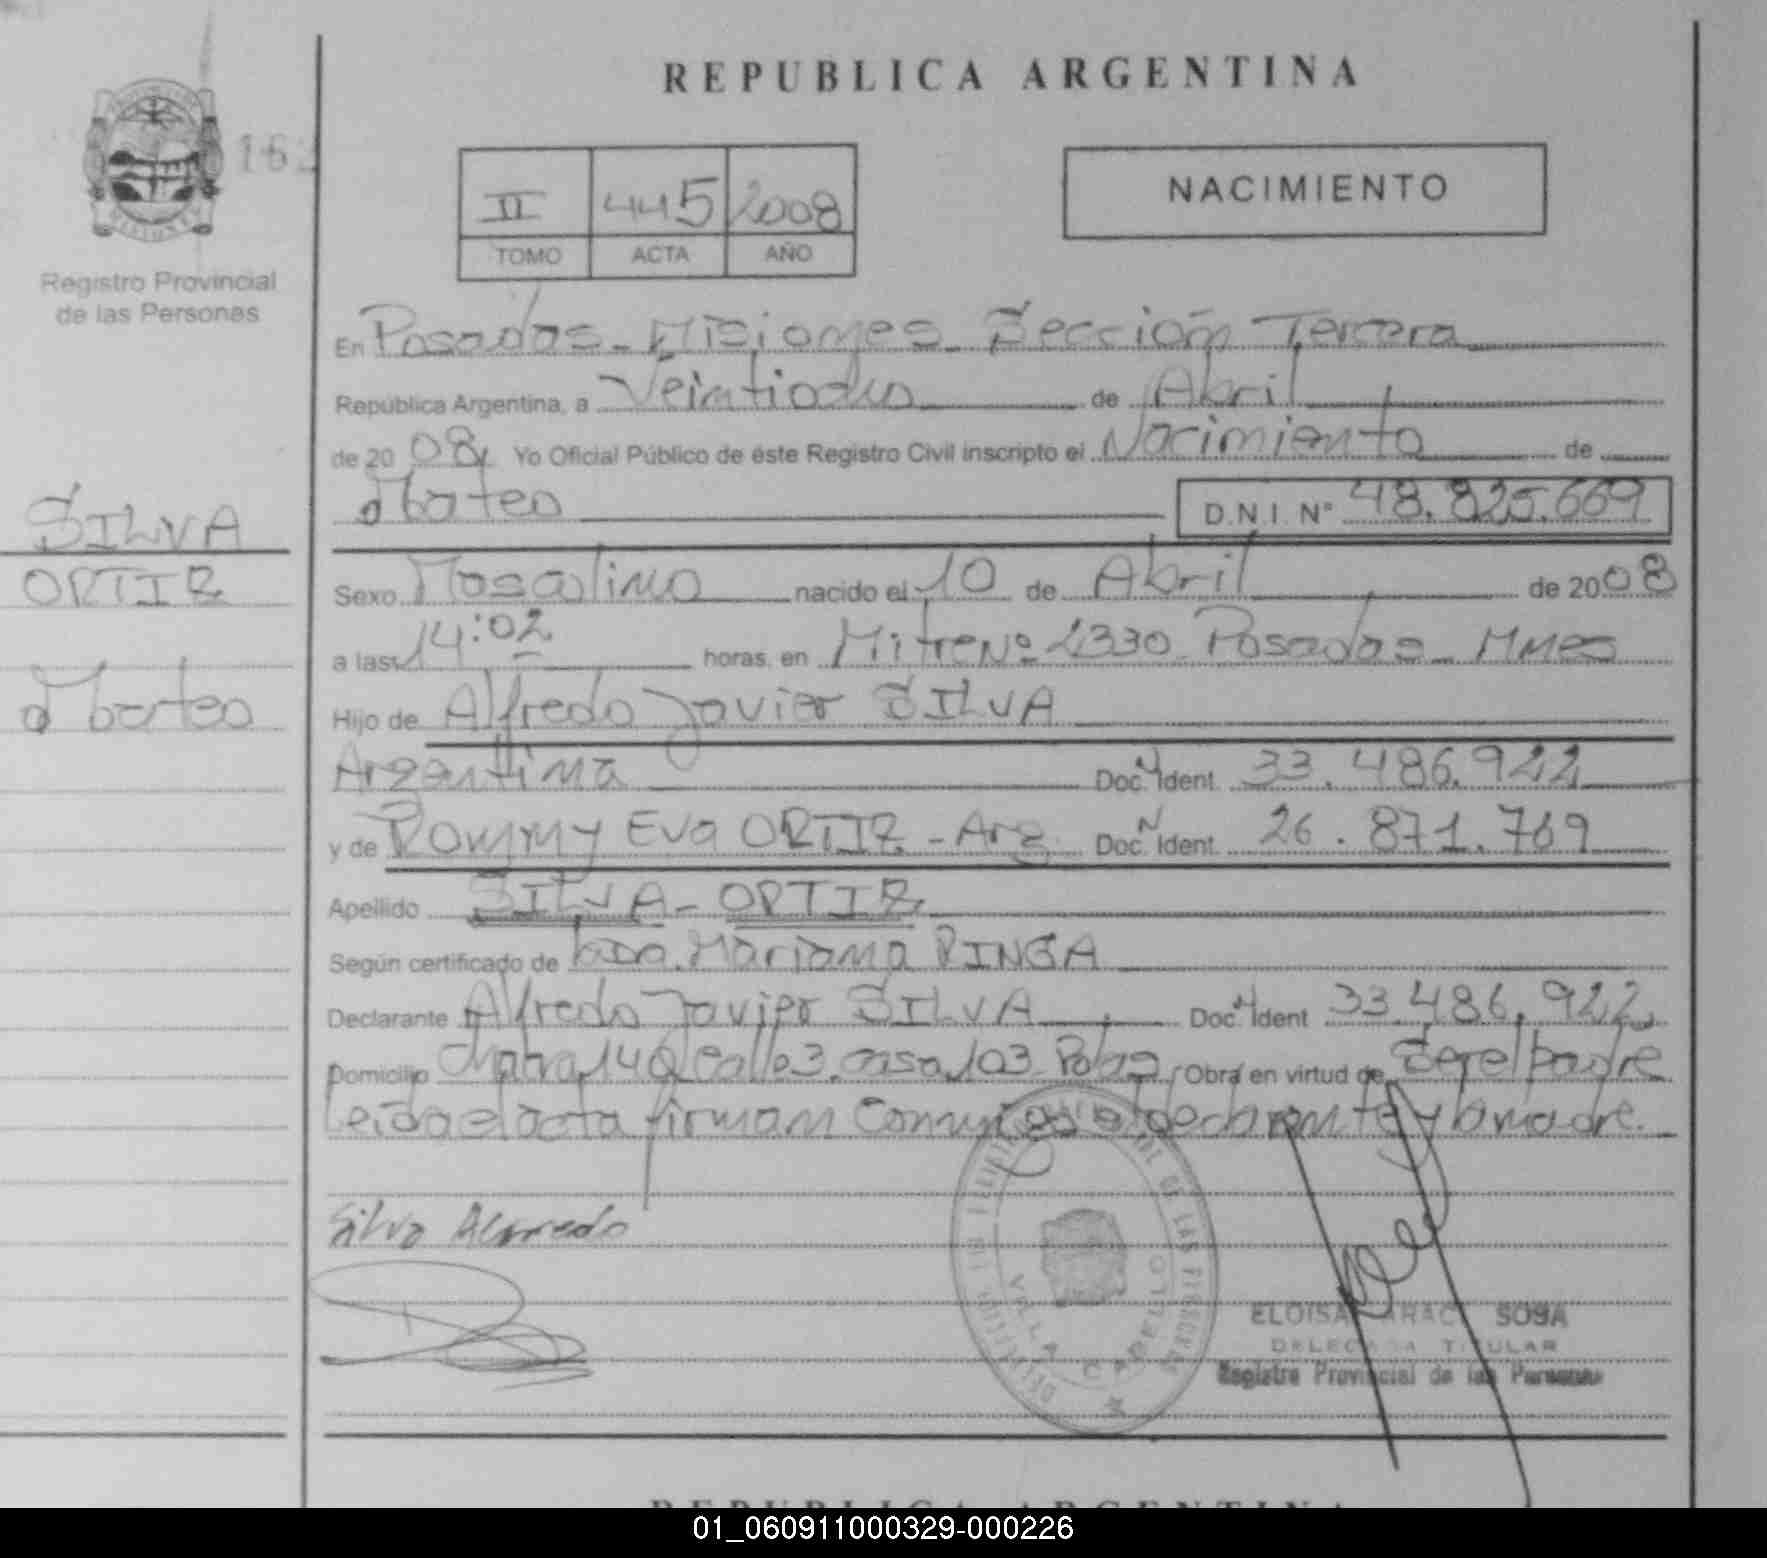 REPUBLICA ARGENTINA
162
II 445 2008
TOMO ACTA AÑO
NACIMIENTO
Registro Provincial
de las Personas
En Posadas - Misiones - Sección Tercera
República Argentina, a Veintiocho de Abril
de 20 08, Yo Oficial Público de éste Registro Civil inscripto el Nacimiento de
Mateo D.N.I. N° 48.825.669
SILVA
ORTIZ
Mateo
Sexo Masculino nacido el 10 de Abril de 2008
a las 14:02 horas, en Mitre Nº 2330 Posadas - Mnes
Hijo de Alfredo Javier SILVA
Argentina Doc. N Ident. 33.486.922
y de Rommy Eva ORTIZ - Arg. Doc. N Ident. 26.871.769
Apellido SILVA - ORTIZ
Según certificado de Mariana RINGA
Declarante Alfredo Javier SILVA Doc. N Ident 33.486.922
Domicilio chacra 149 calle 3 casa 103 Pdas Obra en virtud de ser el padre
Leida el acta firman conmigo el declarante y la madre.
Silva Alfredo
VILLA CABELLO
ELOISA ARACI SOSA
DELEGADA TITULAR
Registro Provincial de las Personas
REPUBLICA ARGENTINA
01_060911000329-000226